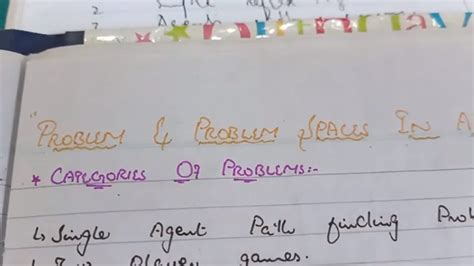 2
"PROBLEM & PROBLEM SPACES IN A
* CATEGORIES OF PROBLEMS:-
↳ Single Agent Path finding Prob
Player games.